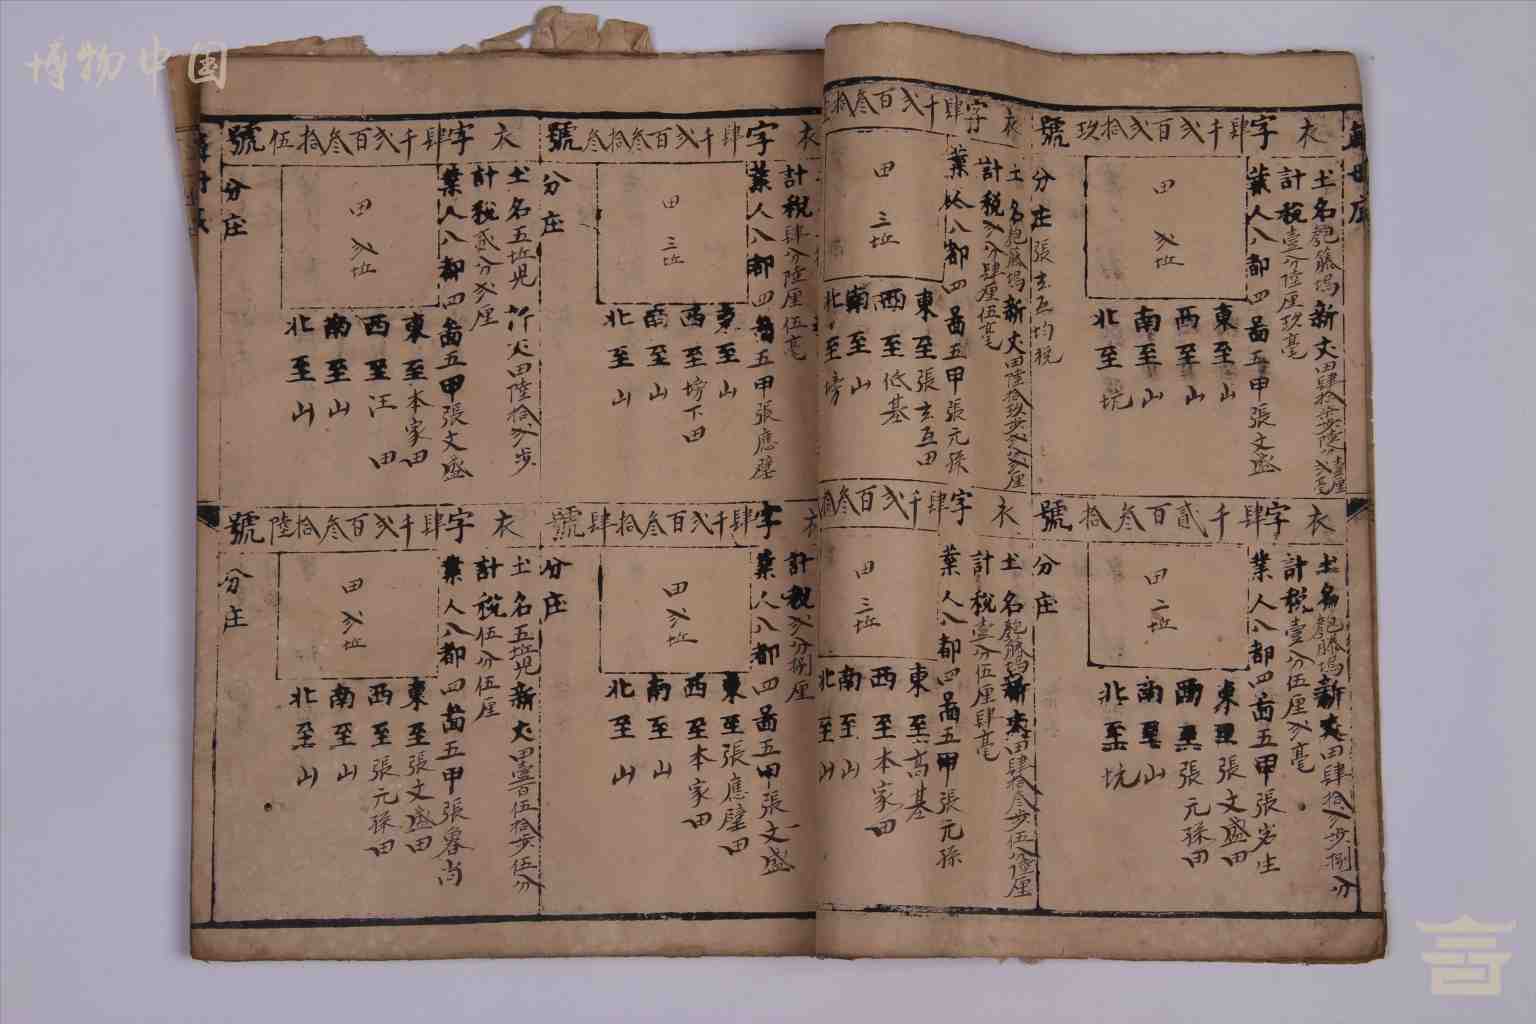 博物中国
衣字肆千弍百弍拾玖號
土名匏藤塢
新丈田肆拾
計稅壹分陸厘玖毫
業人八都四啚五甲張文盛
田
弍坵
東至山
西至山
南至山
北至坑
分庄
張玄互均稅
衣字肆千貳百叁拾號
土名匏藤塢新丈田肆拾弍步捌分
計稅壹分伍厘弍毫
業人八都四啚五甲張岩生
田
二坵
東至張文盛田
西至張元孫田
南至山
北至坑
分庄
衣字肆千弍百叁拾
土名匏藤塢新丈田陸拾玖步弍分弍厘
計稅弍分肆厘伍毫
業人八都四啚五甲張元孫
田
三坵
東至張玄互田
西至低基
南至山
北至塝
衣字肆千弍百叁拾
土名匏藤塢新丈田肆拾叁步伍分陸厘
計稅壹分伍厘肆毫
業人八都四啚五甲張元孫
田
三坵
東至高基
西至本家田
南至山
北至山
衣字肆千弍百叁拾叁號
計稅肆分陸厘伍毫
業人八都四啚五甲張應壁
田
三坵
東至山
西至塝下田
南至山
北至山
分庄
衣字肆千弍百叁拾肆號
計稅弍分捌厘
業人八都四啚五甲張文盛
田
弍坵
東至張應壁田
西至本家田
南至山
北至山
分庄
衣字肆千弍百叁拾伍號
土名五坵児 新丈田陸拾弍步
計稅貳分弍厘
業人八都四啚五甲張文盛
田
弍坵
東至本家田
西至汪田
南至山
北至山
分庄
衣字肆千弍百叁拾陸號
土名五坵児新丈田壹百伍拾步伍分
計稅伍分伍厘
業人八都四啚五甲張魯尚
田
弍坵
東至張文盛田
西至張元孫田
南至山
北至山
分庄